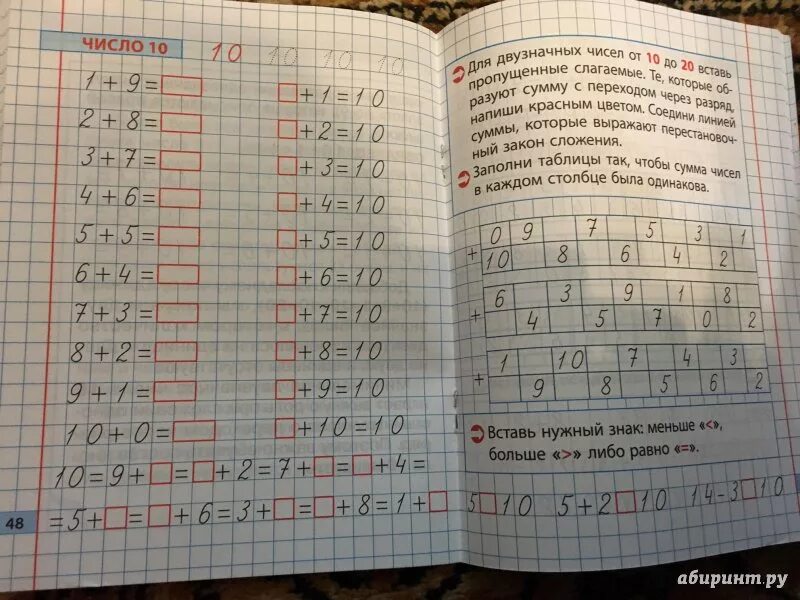 ЧИСЛО 10 10 10 10 10
1 + 9 = □
2 + 8 = □
3 + 7 = □
4 + 6 = □
5 + 5 = □
6 + 4 = □
7 + 3 = □
8 + 2 = □
9 + 1 = □
10 + 0 = □
□ + 1 = 10
□ + 2 = 10
□ + 3 = 10
□ + 4 = 10
□ + 5 = 10
□ + 6 = 10
□ + 7 = 10
□ + 8 = 10
□ + 9 = 10
□ + 10 = 10
10 = 9 + □ = □ + 2 = 7 + □ = □ + 4 =
= 5 + □ = □ + 6 = 3 + □ = □ + 8 = 1 + □
48
Для двузначных чисел от 10 до 20 вставь
пропущенные слагаемые. Те, которые об-
разуют сумму с переходом через разряд,
напиши красным цветом. Соедини линией
суммы, которые выражают перестановоч-
ный закон сложения.
Заполни таблицы так, чтобы сумма чисел
в каждом столбце была одинакова.
0 9 7 5 3 1
+ 10 8 6 4 2
6 3 9 1 8
+ 4 5 7 0 2
1 10 7 4 3
+ 9 8 5 6 2
Вставь нужный знак: меньше «<»,
больше «>» либо равно «=».
5 □ 10 5 + 2 □ 10 14 - 3 □ 10
абиринт.ру